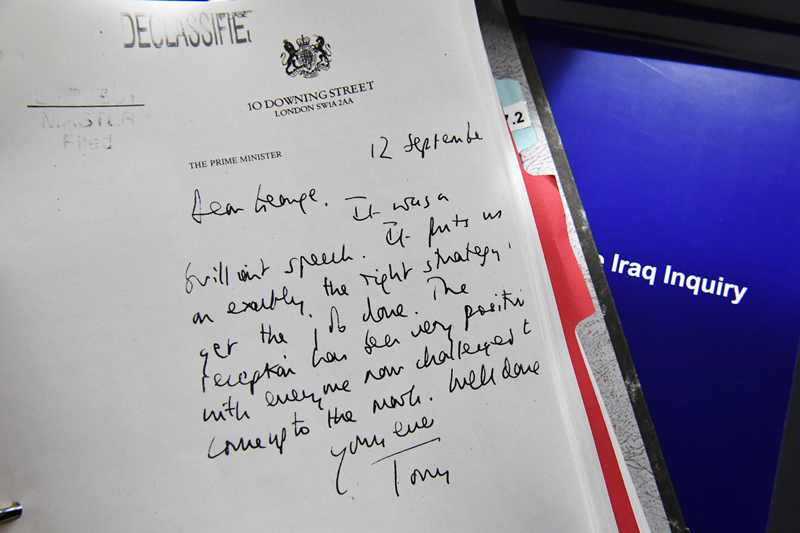 DECLASSIFIED
Filed
10 DOWNING STREET
LONDON SW1A 2AA
THE PRIME MINISTER
12 September
Dear George. It was a
brilliant speech. It puts us
on exactly the right strategy,
get the job done. The
reception has been very positive
with everyone now challenged to
come up to the mark. Well done
Yours ever
Tony
7.2
Iraq Inquiry